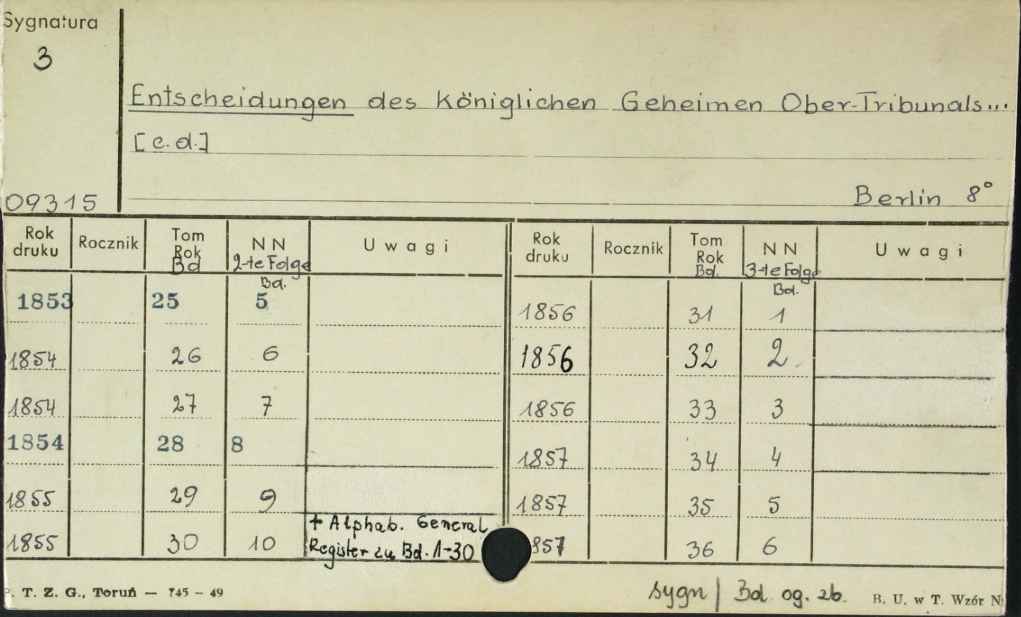 Sygnatura
3
Entscheidungen des Königlichen Geheimen Ober-Tribunals...
[c.d.]
09315
Berlin 8°
Rok druku Rocznik Tom Rok Bd NN 2-te Folge Bd. Uwagi Rok druku Rocznik Tom Rok Bd. NN 3-te Folge Bd. Uwagi
1853 25 5 1856 31 1
1854 26 6 1856 32 2
1854 27 7 1856 33 3
1854 28 8 1857 34 4
1855 29 9 1857 35 5
1855 30 10 + Alphab. General Register zu Bd. 1-30 857 36 6
. T. Z. G., Toruń — 745 - 49 sygn | Bd. og. zb. B. U. w T. Wzór N